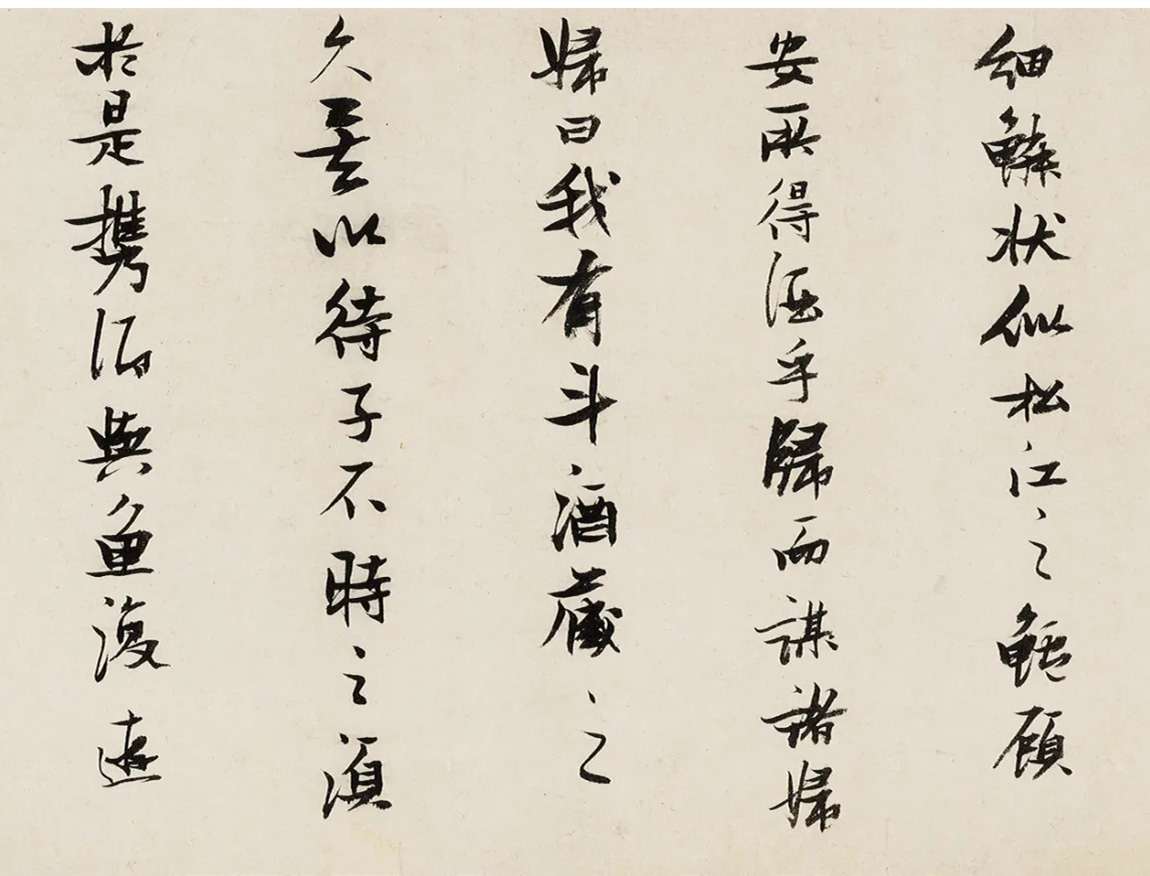 细鳞状似松江之鲈顾
安所得酒乎歸而謀諸婦
婦曰我有斗酒藏之
久矣以待子不時之須
於是携酒與魚復遊